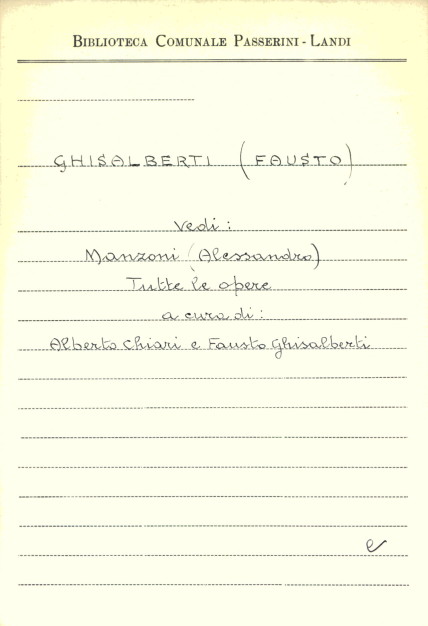 BIBLIOTECA COMUNALE PASSERINI - LANDI
GHISALBERTI (FAUSTO)
Vedi :
Manzoni (Alessandro)
Tutte le opere
a cura di :
Alberto Chiari e Fausto Ghisalberti
e